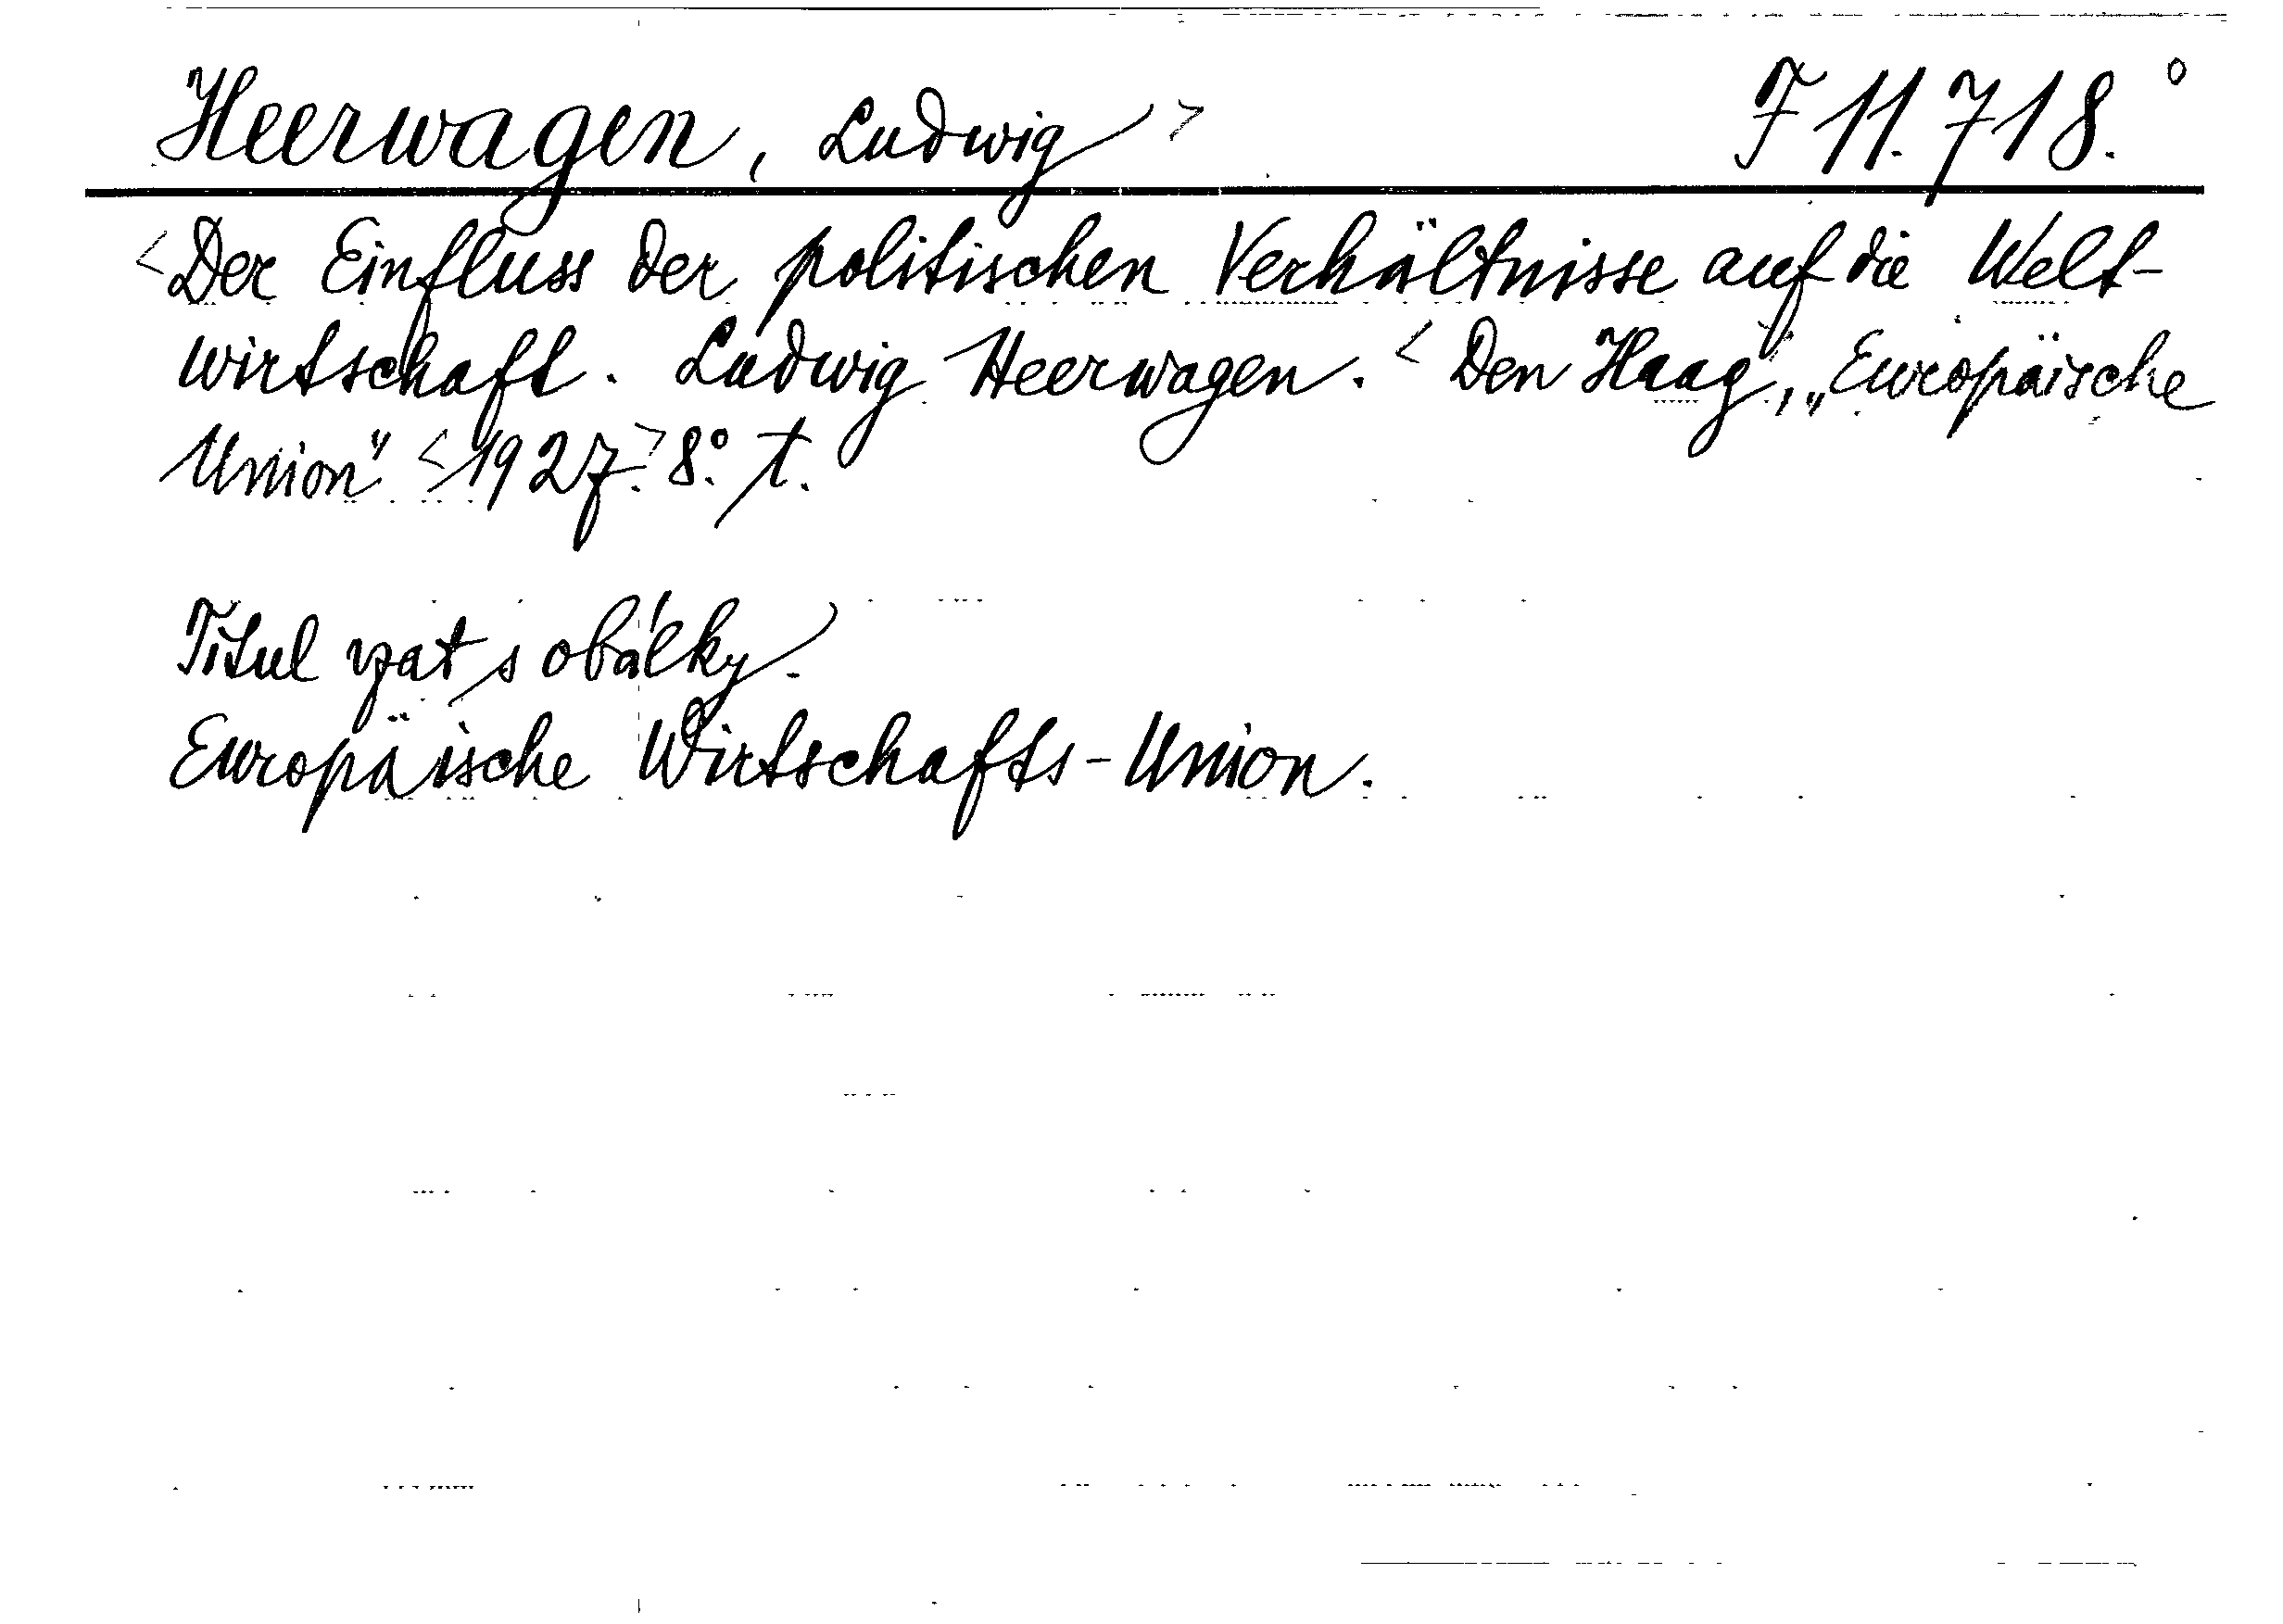 Heerwagen, Ludwig > F 11.718.°
<Der Einfluss der politischen Verhältnisse auf die Welt-
wirtschaft. Ludwig Heerwagen. < Den Haag, „Europäische
Union“ <1927.> 8°. t.
Titul vzat s obálky.
Europäische Wirtschafts-Union.